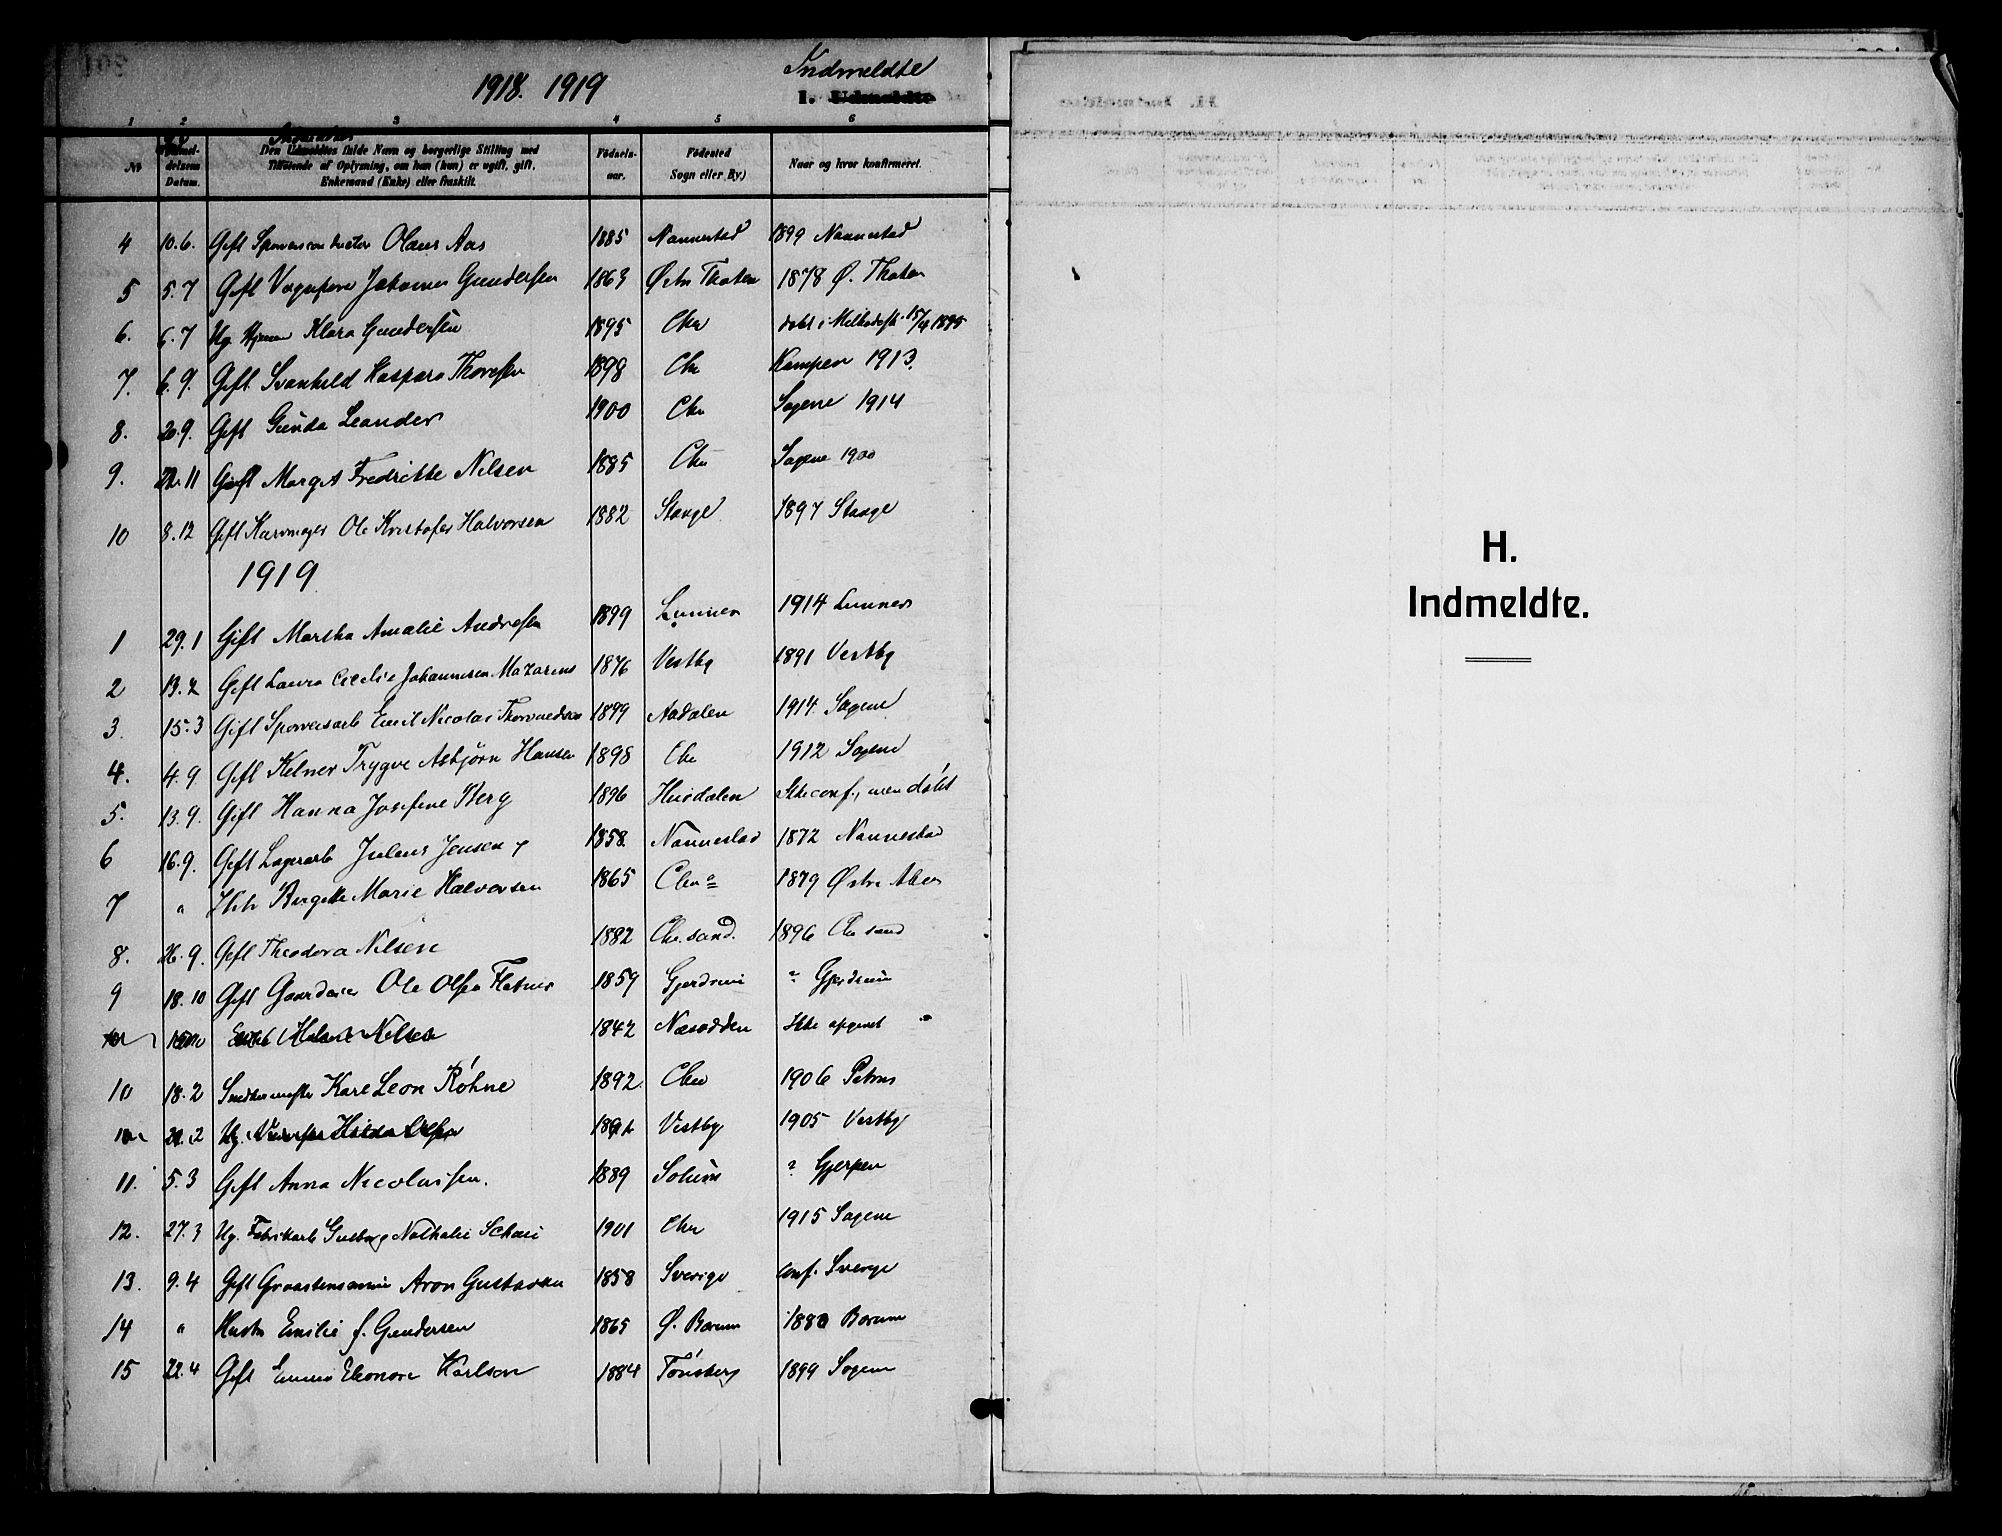 1918. 1919
Indmeldte
I. Udmeldte
1 2 3 4 5 6
No. delsens Datum. Den Udmeldtes fulde Navn og borgerlige Stilling med Tilføiende af Oplysning, om han (hun) er ugift, gift, Enkemand (Enke) eller fraskilt. Fødselsaar. Fødested Sogn eller By) Naar og hvor konfirmeret.
4 10.6. Gift Olaus Aas 1885 Nannestad 1899 Nannestad
5 5.7 Gift Johannes Gundersen 1863 Østre Thoten 1878 Ø. Thoten
6. 6.7 Ug. Klara Gundersen 1895 Chra døbt i 15/9 1895
7. 6.9. Gift Svanhild Kaspara Thoresen 1898 Chra Kampen 1913.
8. 20.9. Gift Gunda Leander 1900 Chra Sagene 1914
9. 22.11 Gift Margit Fredrikke Nilsen 1885 Chra Sagene 1900
10 8.12 Gift Ole Kristofer Halvorsen 1882 Stange 1897 Stange
1919
1 29.1 Gift Martha Amalie Andresen 1899 Lunner 1914 Lunner
2 13.2 Gift Laura Cecelie Johannesen Mazarens 1876 Vestby 1891 Vestby
3. 15.3 Gift Sporveisarb Emil Nicolai Thorvaldsen 1899 Aadalen 1914 Sagene
4. 4.9 Gift Kelner Trygve Asbjørn Hansen 1898 Chra 1912 Sagene
5. 13.9. Gift Hanna Josefine Berg 1896 Hurdalen Ikke conf., men døbt
6 16.9. Gift Lagerarb Julius Jensen 1858. Nannestad 1872 Nannestad
7 " Hstr Birgitte Marie Halvorsen 1865 Chra 1879 Østre Aker
8. 26.9. Gift Theodora Nilsen 1882 Chr.sand. 1896 Chr sand
9 18.10 Gift Gaardeier Ole Olsen 1859 Gjerdrum ? Gjerdrum
Nilsen 1842 Næsodden Ikke opgivet
10 18.2 Snedkermester Karl Leon Røhne 1892. Chra 1906 Petrus
21.2 Ug. Vestby 1905 Vestby
11. 5.3 Gift Anna Nicolaisen. 1889 Solum ? Gjerpen
12. 27.3 Ug. Fabrikarb Guborg Nathalie 1901 Chra 1915 Sagene
13. 9.4 Gift Aron Gustavsen 1858 Sverige conf. Sverige
14 " Hustru Emilie f. Gundersen 1865 Ø. Bærum 1880 Bærum
15 22.4 Gift Emma Eleonore Karlson 1884 Tønsberg 1899 Sagene
H.
Indmeldte.